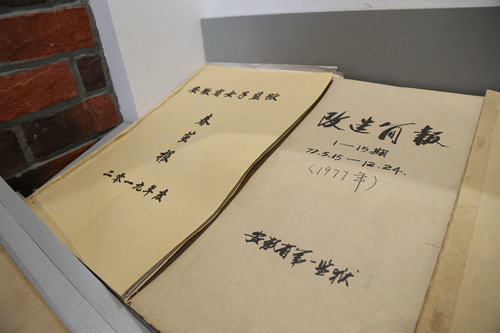 安徽省女子监狱
春蚕报
二零一九年度
改造简报
1—15期
77.5.15—12.24.
(1977年)
安徽省第一监狱